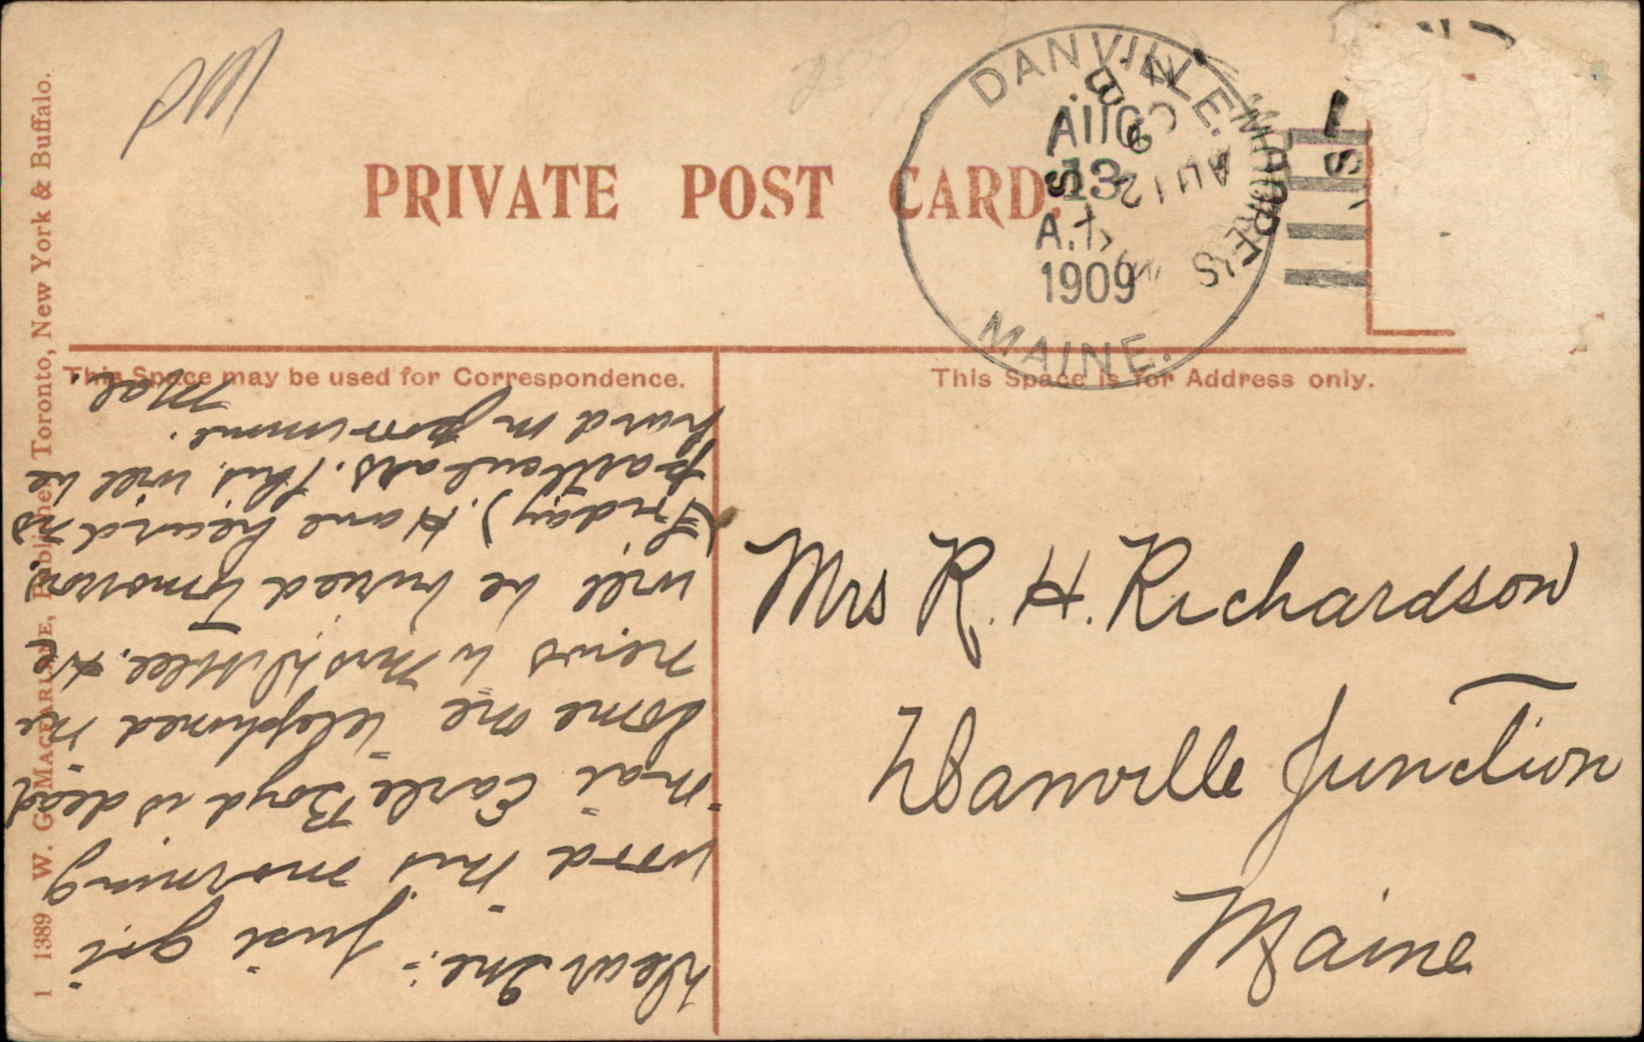 PRIVATE POST CARD.
DANVILLE.
AUG
13
1909
MAINE.
AU 12
This Space may be used for Correspondence.
This Space is for Address only.
1 1389 W. G. MACFARLANE, Publisher, Toronto, New York & Buffalo.
Dear Ine:- Just got
word this morning
that Earle Boyd is dead
Some one telephoned the
news to Mrs He
will be buried tomorrow
(Friday). Have heard no
particulars. This will be
hard on
Mae.
Mrs R. H. Richardson
Danville Junction
Maine